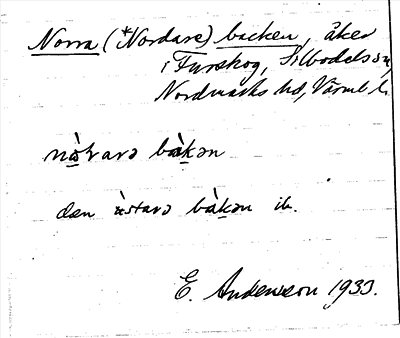 Norra (*Nordare) backen, åker
i Furskog, Silbodals sn,
Nordmarks hd, Värml. l.
nò̱rarə bàḵən
den ùstarə bàḵən ib.
E. Andersson 1933.